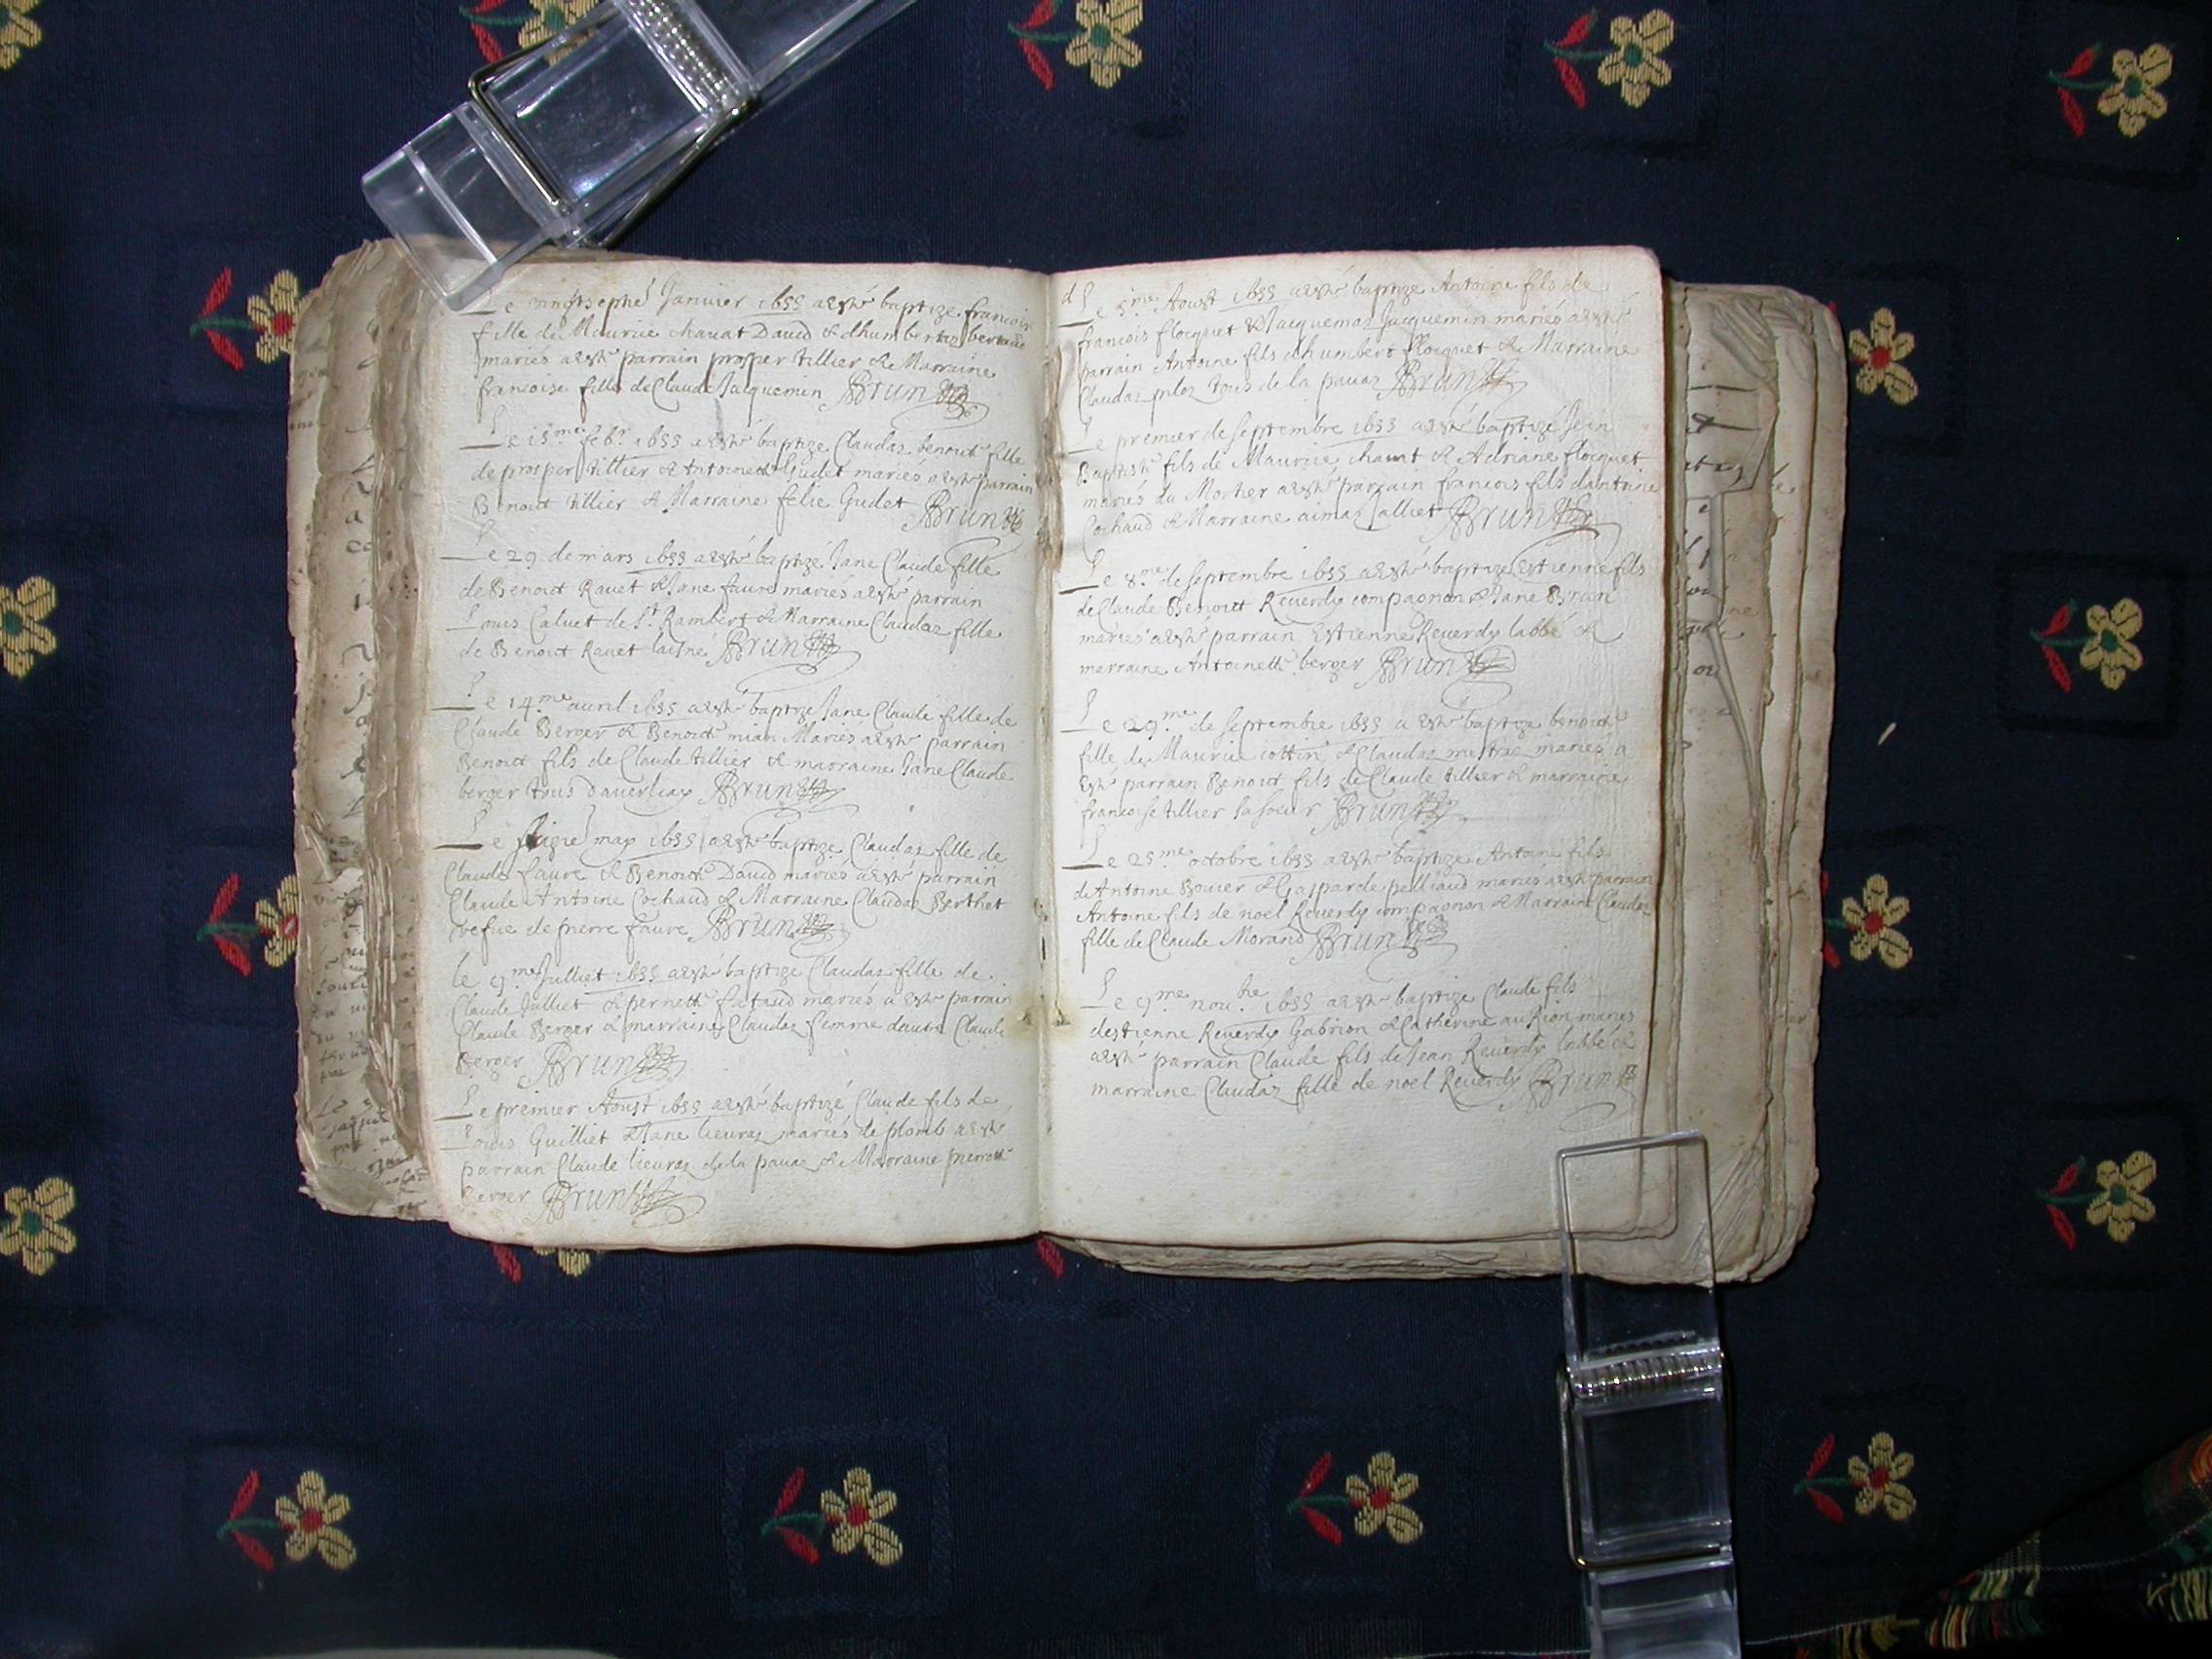 Le vingtsept.e Janvier 1655 a esté baptize francoise
fille de Maurice chavat David & dhumberte bernard
mariés a esté parrain prosper tillier & Marraine
francoise fille de Claude Jacquemin Brun
Le 15.me feb.r 1655 a esté baptize Claudaz benoite fille
de prosper tillier & Antoinette Gudet mariés a esté parrain
Benoict tillier & Marraine felie Gudet Brun
Le 29 de mars 1655 a esté baptizé Jane Claude fille
de Benoict Ravet & Jane faure mariés a esté parrain
Louis Calvet de St. Rambert & Marraine Claudaz fille
de Benoict Ravet laisné Brun
Le 14.me avril 1655 a esté baptize Jane Claude fille de
Claude Berger & Benoite mian Mariés a esté parrain
Benoict fils de Claude tillier & marraine Jane Claude
berger tous daverliaz Brun
Le may 1655 a esté baptize Claudaz fille de
Claude faure & Benoite David mariés a esté parrain
Claude Antoine Cochaud & Marraine Claudaz Berthet
vefue de pierre faure Brun
le 9.me Julliet 1655 a esté baptize Claudaz fille de
Claude Julliet & pernette fataud mariés a esté parrain
Claude Berger & marraine Claudaz femme dautre Claude
Berger Brun
Le premier Aoust 1655 a esté baptizé Claude fils de
Louis Guilliet & Jane lievraz mariés de plomb a esté
parrain Claude lievraz de la pavaz & Marraine pierrette
Berger Brun
Le 5.me Aoust 1655 a esté baptize Antoine fils de
francois floquet & Jacquemaz Jacquemin mariés a esté
parrain Antoine fils dhumbert floquet & Marraine
Claudaz piloz tous de la pavaz Brun
Le premier de septembre 1655 a esté baptizé Jean
Baptiste fils de Maurice chavat & Adriane floquet
mariés du Mortier a esté parrain francois fils dantoine
Cochaud & Marraine aimaz Julliet Brun
Le 8.me de septembre 1655 a esté baptize Estienne fils
de Claude Benoict Reverdy compagnon & Jane Brun
mariés a esté parrain Estienne Reverdy labbé &
marraine Antoinette berger Brun
Le 29.me de septembre 1655 a esté baptize benoite
fille de Maurice cottin & Claudaz mestraz mariés a
esté parrain Benoict fils de Claude tillier & marraine
francoise tillier sa soeur Brun
Le 25.me octobre 1655 a esté baptize Antoine fils
de Antoine Bouier & Gasparde pelliaud mariés a esté parrain
Antoine fils de noel Reverdy compagnon & Marraine Claudaz
fille de Claude Morand Brun
Le 9.me nou.bre 1655 a esté baptize Claude fils
destienne Reverdy Gabrion & Catherine au Rion mariés
a esté parrain Claude fils de Jean Reverdy labbé &
marraine Claudaz fille de noel Reverdy Brun